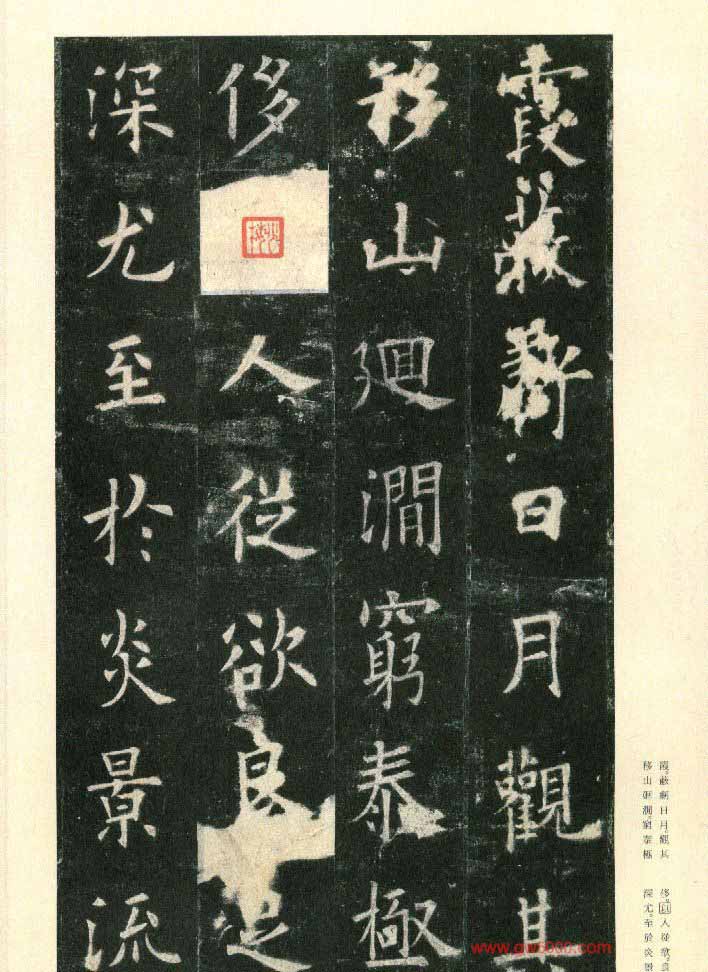 霞蔽虧日月觀其
移山廻澗窮泰極
侈人從欲良足
深尤至於炎景流
霞蔽虧日月觀其
移山廻澗窮泰極
侈以人從欲良
深尤至於炎景
www.gw8000.com